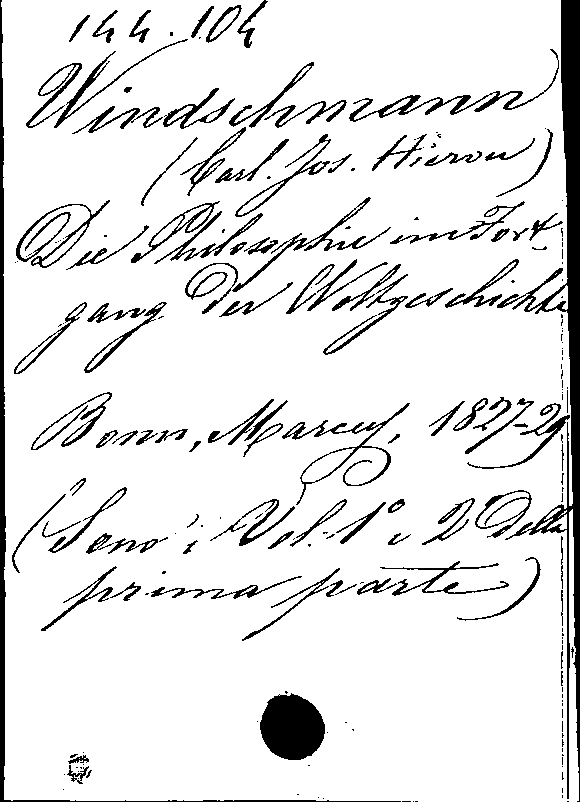 144.104
Windschmann
(Carl. Jos. Hieron)
Die Philosophie im Fort-
gang der Weltgeschichte
Bonn, Marcus, 1827-29
(Sono i Vol. 1° e 2° della
prima parte)